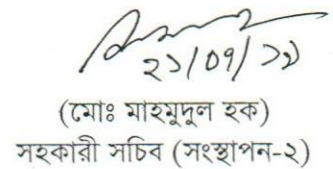 ২১/০৭/১১
(মোঃ মাহমুদুল হক)
সহকারী সচিব (সংস্থাপন-২)